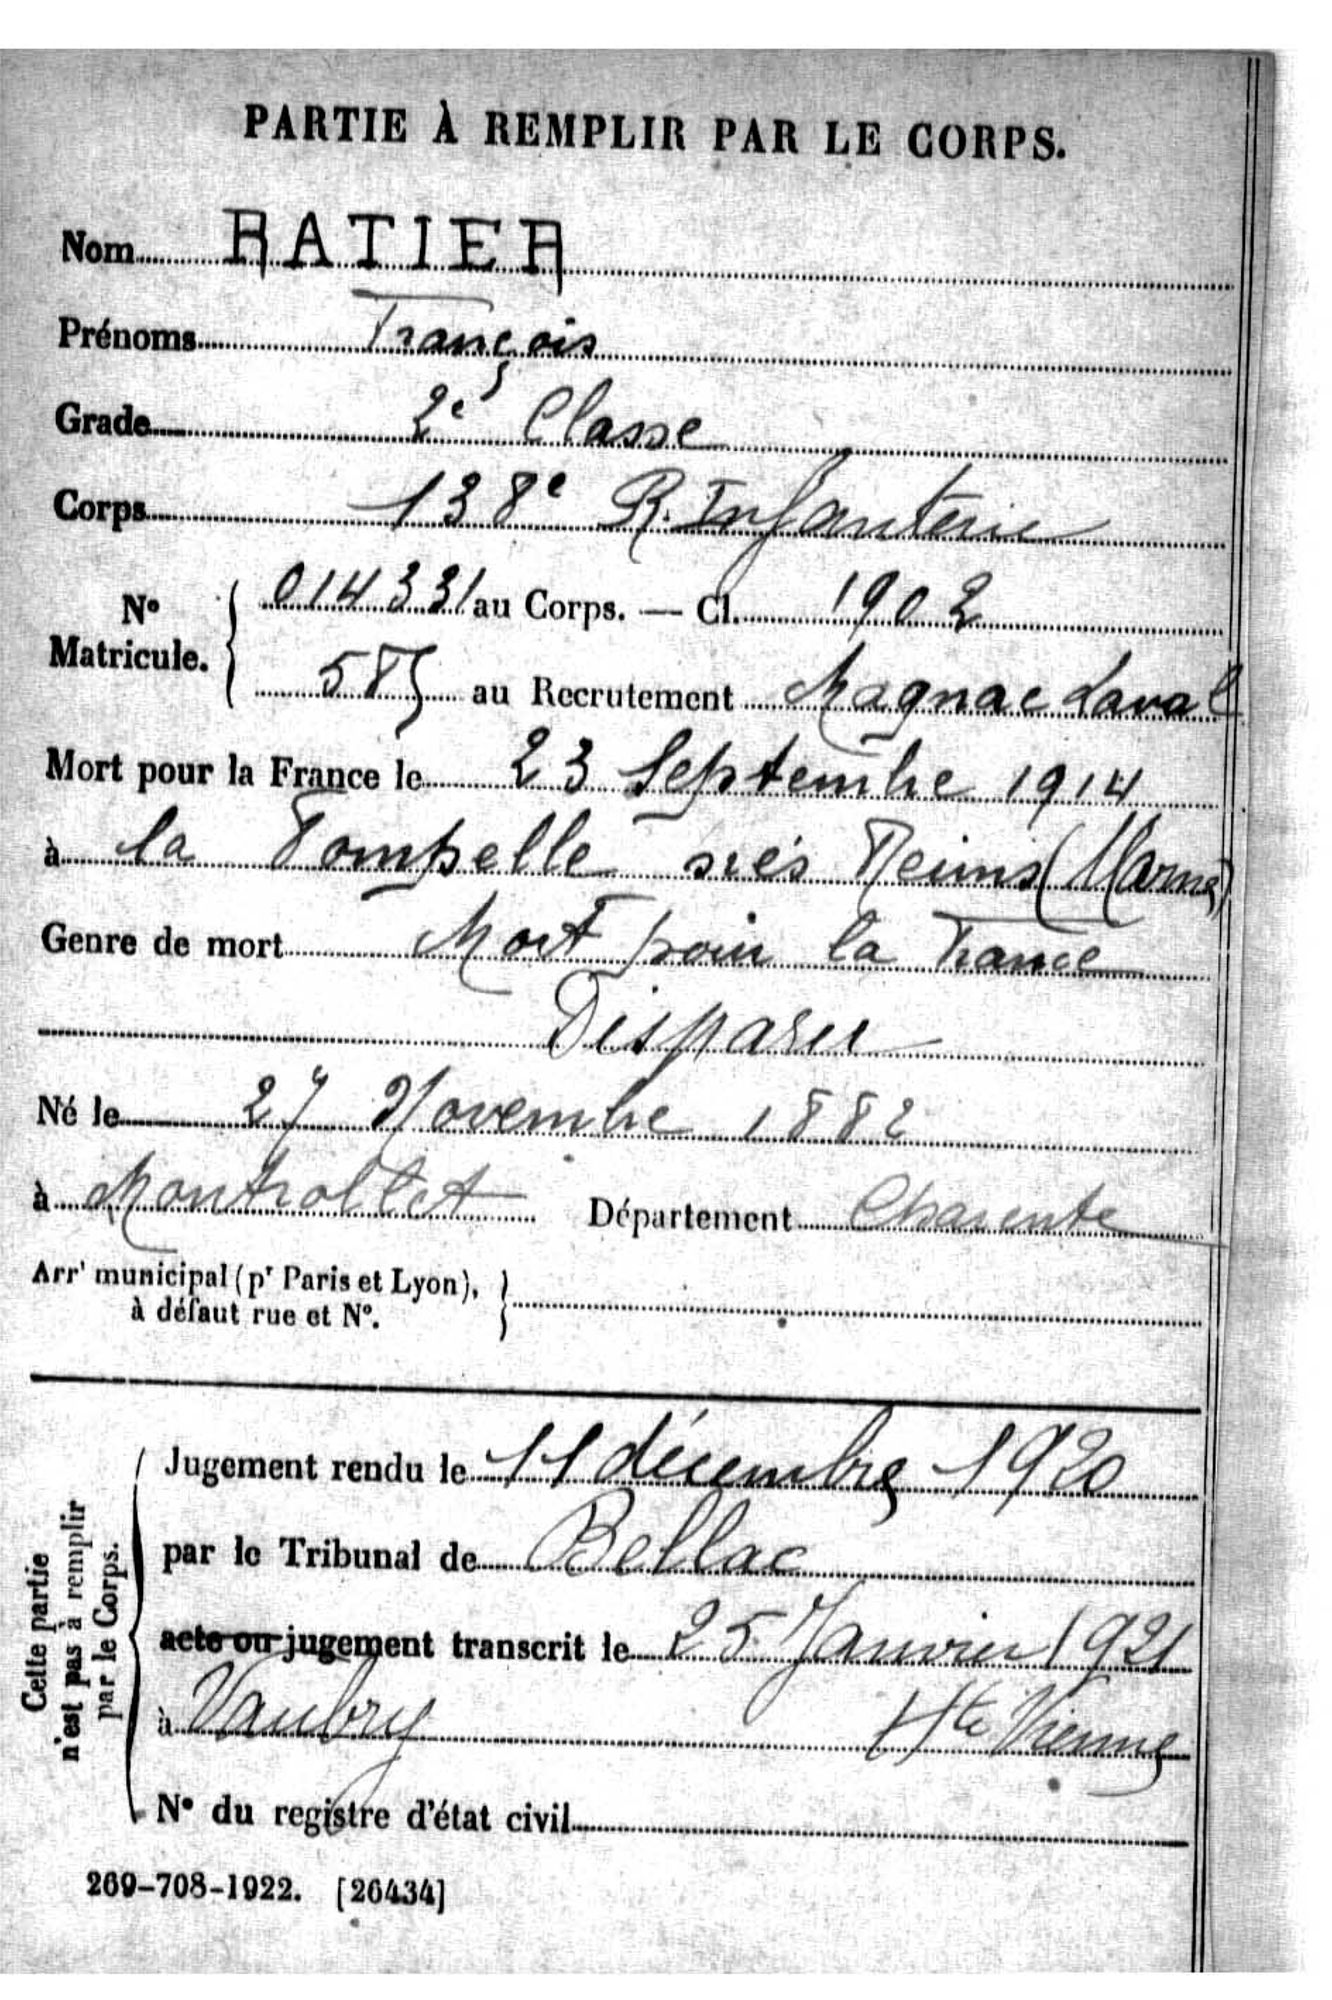 PARTIE À REMPLIR PAR LE CORPS.
Nom RATIER
Prénoms François
Grade 2e Classe
Corps 138e R. Infanterie
No Matricule. { 014331 au Corps. — Cl. 1902
585 au Recrutement Magnac Laval
Mort pour la France le 23 Septembre 1914
à la Pompelle près Reims (Marne)
Genre de mort Mort pour la France
Disparu
Né le 27 Novembre 1882
à Montrollet Département Charente
Arrt municipal (pr Paris et Lyon), }
à défaut rue et No.
Cette partie
n'est pas à remplir
par le Corps.
Jugement rendu le 11 décembre 1920
par le Tribunal de Bellac
acte ou jugement transcrit le 25 Janvier 1921
à Vaubry Hte Vienne
No du registre d'état civil
269-708-1922. [26434]